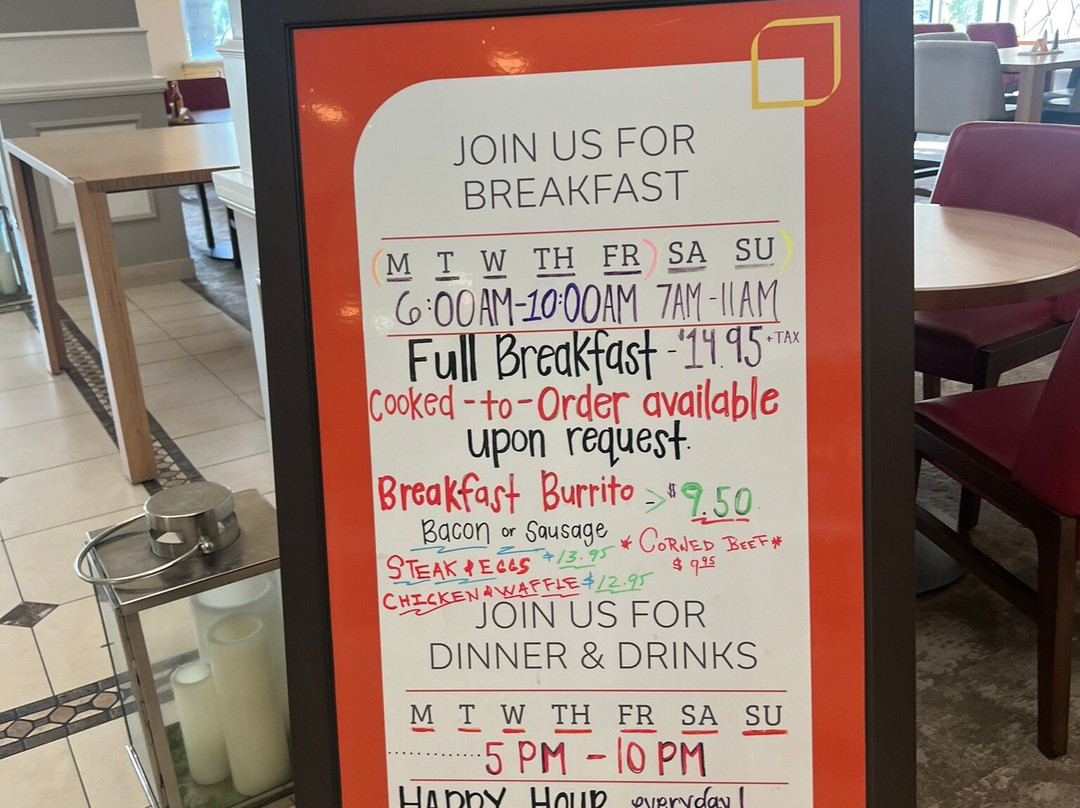 JOIN US FOR
BREAKFAST
(M T W TH FR) SA SU)
6:00AM-10:00AM 7AM-11AM
Full Breakfast - $14.95 + TAX
Cooked-to-Order available
upon request.
Breakfast Burrito > $9.50
Bacon or Sausage
STEAK & EGGS $13.95 * CORNED BEEF *
$9.95
CHICKEN & WAFFLE $12.95
JOIN US FOR
DINNER & DRINKS
M T W TH FR SA SU
5 PM - 10 PM
HAPPY HOUR everyday!